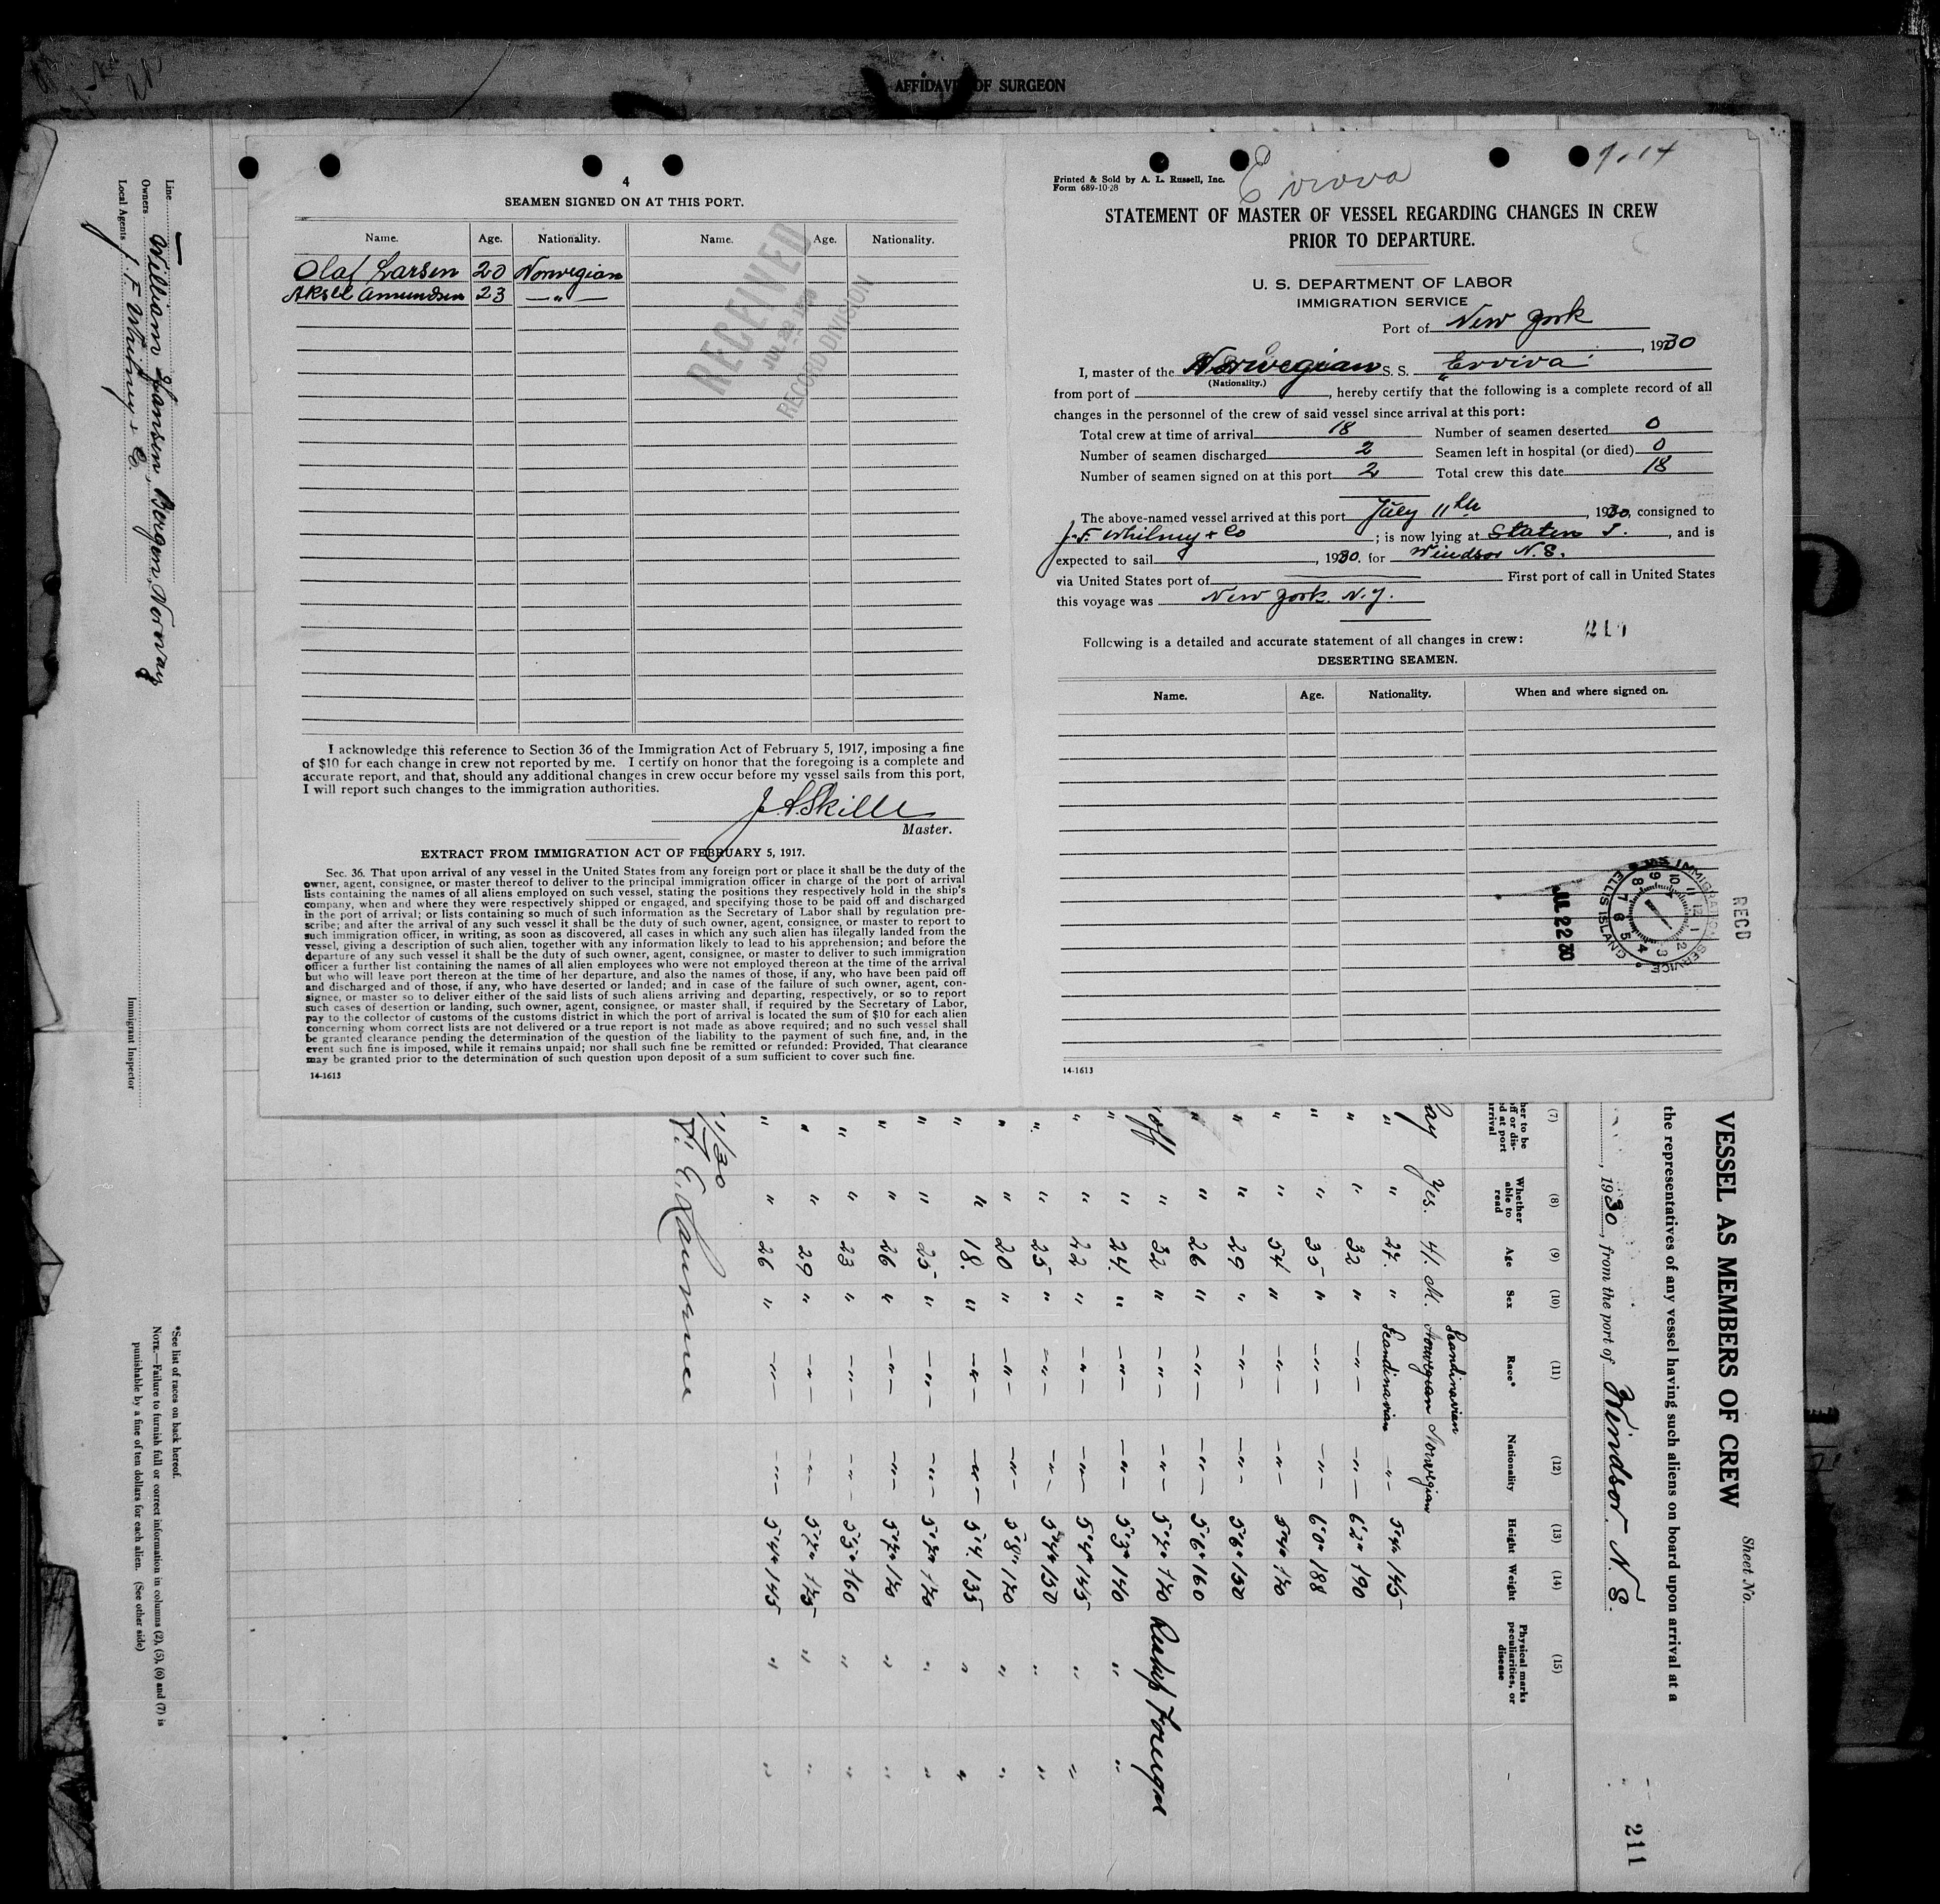 AFFIDAVIT OF SURGEON
4
SEAMEN SIGNED ON AT THIS PORT.
Name. Age. Nationality. Name. Age. Nationality.
Olaf Larsen 20 Norwegian
Aksel Amundsen 23 —"—
RECEIVED
JUL 1930
RECORD DIVISION
I acknowledge this reference to Section 36 of the Immigration Act of February 5, 1917, imposing a fine
of $10 for each change in crew not reported by me. I certify on honor that the foregoing is a complete and
accurate report, and that, should any additional changes in crew occur before my vessel sails from this port,
I will report such changes to the immigration authorities.
J.A. Skille
Master.
EXTRACT FROM IMMIGRATION ACT OF FEBRUARY 5, 1917.
Sec. 36. That upon arrival of any vessel in the United States from any foreign port or place it shall be the duty of the
owner, agent, consignee, or master thereof to deliver to the principal immigration officer in charge of the port of arrival
lists containing the names of all aliens employed on such vessel, stating the positions they respectively hold in the ship's
company, when and where they were respectively shipped or engaged, and specifying those to be paid off and discharged
in the port of arrival; or lists containing so much of such information as the Secretary of Labor shall by regulation pre-
scribe; and after the arrival of any such vessel it shall be the duty of such owner, agent, consignee, or master to report to
such immigration officer, in writing, as soon as discovered, all cases in which any such alien has illegally landed from the
vessel, giving a description of such alien, together with any information likely to lead to his apprehension; and before the
departure of any such vessel it shall be the duty of such owner, agent, consignee, or master to deliver to such immigration
officer a further list containing the names of all alien employees who were not employed thereon at the time of the arrival
but who will leave port thereon at the time of her departure, and also the names of those, if any, who have been paid off
and discharged and of those, if any, who have deserted or landed; and in case of the failure of such owner, agent, con-
signee, or master so to deliver either of the said lists of such aliens arriving and departing, respectively, or so to report
such cases of desertion or landing, such owner, agent, consignee, or master shall, if required by the Secretary of Labor,
pay to the collector of customs of the customs district in which the port of arrival is located the sum of $10 for each alien
concerning whom correct lists are not delivered or a true report is not made as above required; and no such vessel shall
be granted clearance pending the determination of the question of the liability to the payment of such fine, and, in the
event such fine is imposed, while it remains unpaid; nor shall such fine be remitted or refunded: Provided, That clearance
may be granted prior to the determination of such question upon deposit of a sum sufficient to cover such fine.
14-1613
Printed & Sold by A. L. Russell, Inc.
Form 689-10-28
Erviva
STATEMENT OF MASTER OF VESSEL REGARDING CHANGES IN CREW
PRIOR TO DEPARTURE.
U. S. DEPARTMENT OF LABOR
IMMIGRATION SERVICE
Port of New York
, 1930
I, master of the Norwegian S. S. "Erviva"
(Nationality.)
from port of , hereby certify that the following is a complete record of all
changes in the personnel of the crew of said vessel since arrival at this port:
Total crew at time of arrival 18 Number of seamen deserted 0
Number of seamen discharged 2 Seamen left in hospital (or died) 0
Number of seamen signed on at this port 2 Total crew this date 18
The above-named vessel arrived at this port July 11th , 1930, consigned to
J.F. Whitney & Co ; is now lying at Staten I. , and is
expected to sail , 1930. for Windsor N.S.
via United States port of First port of call in United States
this voyage was New York. N.Y.
Following is a detailed and accurate statement of all changes in crew:
DESERTING SEAMEN.
Name. Age. Nationality. When and where signed on.
RECD
U.S. IMMIGRATION SERVICE
ELLIS ISLAND
JUL 22 30
14-1613
Line
Owners William Hansen, Bergen, Norway
Local Agents J. F. Whitney & Co
Immigrant Inspector
*See list of races on back hereof.
NOTE.—Failure to furnish full or correct information in columns (2), (5), (6) and (7) is
punishable by a fine of ten dollars for each alien. (See other side)
Sheet No.
VESSEL AS MEMBERS OF CREW
the representatives of any vessel having such aliens on board upon arrival at a
, 1930, from the port of Windsor. N.S.
211
(7) (8) (9) (10) (11) (12) (13) (14) (15)
Whether able to read Age Sex Race* Nationality Height Weight Physical marks peculiarities, or disease
Yes. 41. M. Scandinavian Norwegian Norwegian
" " 27. " Scandinavian -"- 5'4" 145
" " 32 " -"- -"- 6'2" 190
" " 35 " -"- -"- 6'0" 188
" " 54 " -"- -"- 170
" " 29 " -"- -"- 5'6" 150
" " 26 " -"- -"- 5'6" 160
off " 32 " -"- -"- 5'7" 170 Reship Foreign
" " 24. " -"- -"- 5'3" 140 " "
" " 42 " -"- -"- 5'4" 145 " "
" " 25 " -"- -"- 5'4" 150 " "
" " 20 " -"- -"- 5'8" 170 " "
" " 18. " -"- -"- 5'4. 135 " "
" " 25 " -"- -"- 5'7" 170 " "
" " 26 " -"- -"- 5'7" 170 " "
" " 23 " -"- -"- 5'5" 160 " "
" " 29 " -"- -"- 5'7" 175 " "
" " 26 " -"- -"- 5'4" 145 " "
11/30